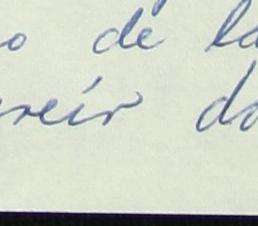 o de la
reír do